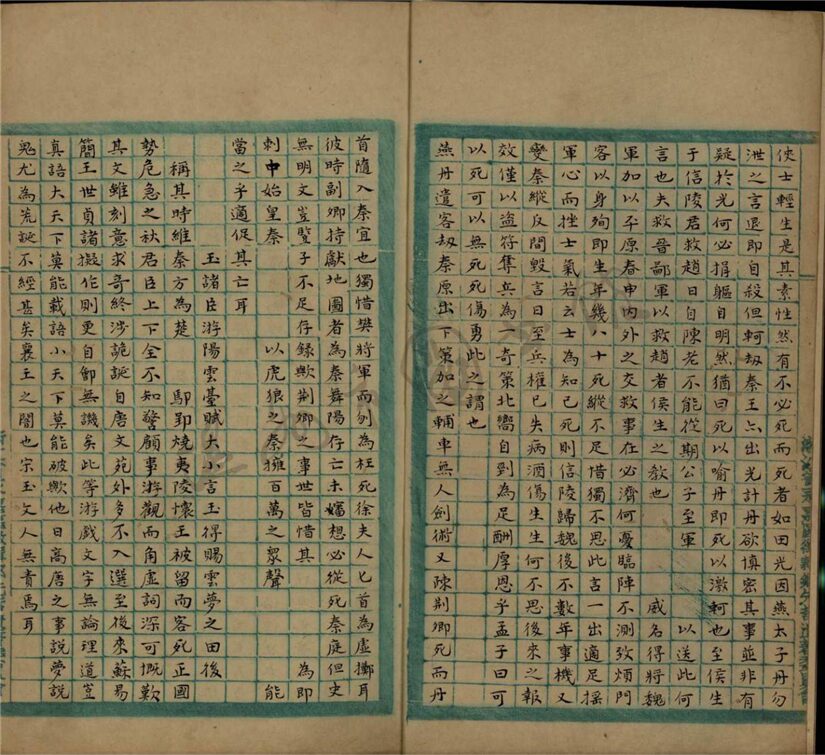 俠士輕生是其素性然有不必死而死者如田光因燕太子丹勿
泄之言退即自殺但軻刼秦王亾出光計丹欲慎密其事並非有
疑於光何必捐軀自明然猶曰死以喻丹即死以激軻也至侯生
于信陵君救趙日自陳老不能從期公子至軍 以送此何
言也夫救晉鄙軍以救趙者侯生之教也 威名得將魏
軍加以平原春申內外之交救事在必濟何憂臨陣不測攷煩門
客以身殉即生年幾八十死縱不足惜獨不思此言一出適足搖
軍心而挫士氣若云士為知己死則信陵歸魏後不數年事機又
變秦縱反間毀言日至兵權已失病酒傷生生何不思後來之報
效僅以盜符奪兵為一奇策北嚮自刭為足酬厚恩乎孟子曰可
以死可以無死死傷勇此之謂也
燕丹遣客刼秦原出下策加之輔車無人劍術又疎荆卿死而丹
首隨入秦宜也獨惜樊將軍而刎為枉死徐夫人匕首為虛擲耳
彼時副卿持獻地圖者為秦舞陽存亡未嫿想必從死秦庭但史
無明文豈豎子不足存錄歟荆卿之事世皆惜其 為即
刺中始皇秦 以虎狼之秦擁百萬之衆聲 能
當之乎適促其亡耳
玉諸臣游陽雲臺賦大小言玉得賜雲夢之田後
稱其時維秦方為楚 鄢郢燒夷陵懷王被留而客死正國
勢危急之秋君臣上下全不知警顧事游觀而角虛詞深可慨歎
其文雖刻意求奇終涉詭誕自唐文苑外多不入選至後來蘇易
簡王世貞諸擬作則更自鄶無譏矣此等游戲文字無論理道豈
真語大天下莫能載語小天下莫能破歟他日高唐之事說夢說
鬼尤為荒誕不經甚矣襄王之闇也宋玉文人無責焉耳